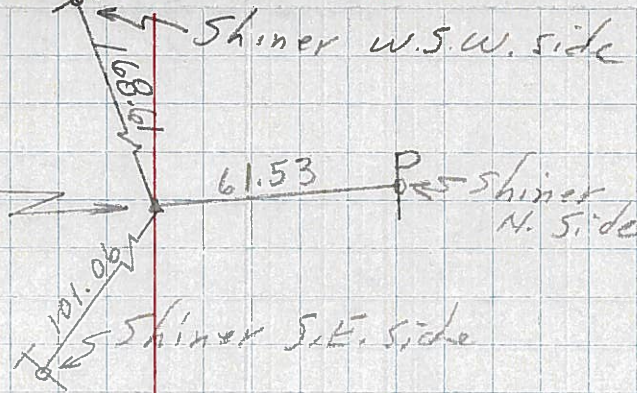 Shiner W.S.W. side
68.61
61.53
P
Shiner
N. Side
101.06
Shiner S.E. side